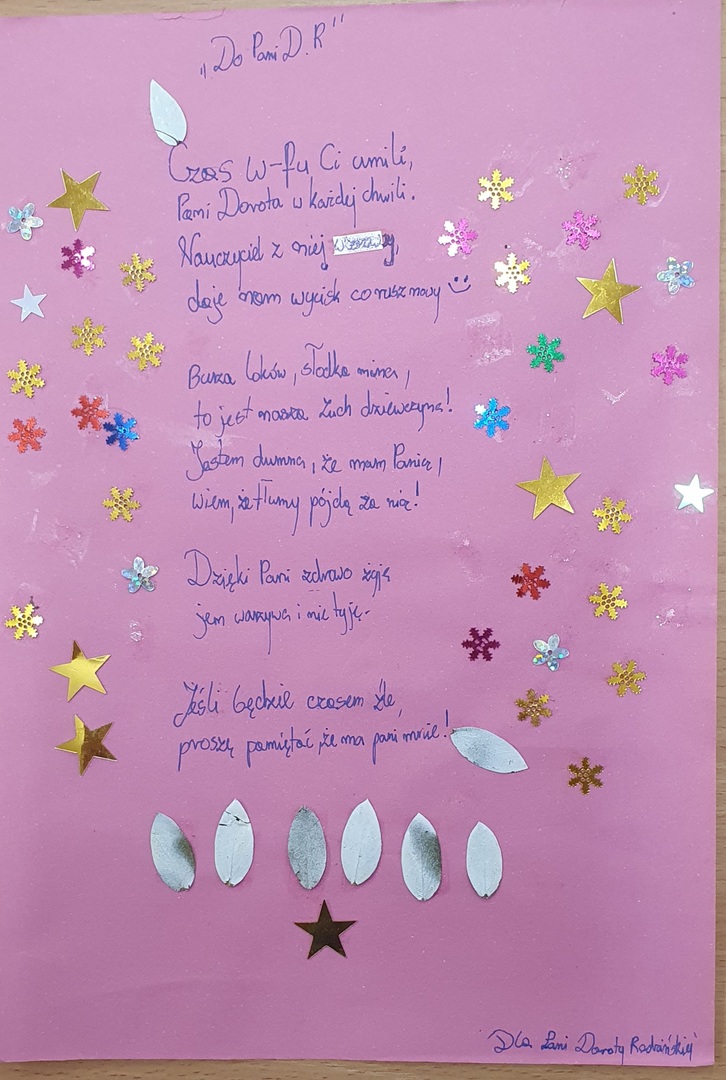 „Do Pani D.R"
Czas w-fu Ci umili,
Pani Dorota w każdej chwili.
Nauczyciel z niej wzorowy,
daje nam wycisk corusz nowy
Burza loków, słodka mina,
to jest nasza zuch dziewczyna!
Jestem dumna, że mam Panią,
wiem, że tłumy pójdą za nią!
Dzięki Pani zdrowo żyję
jem warzywa i nie tyję.
Jeśli będzie czasem źle,
proszę pamiętać, że ma pani mnie!
Dla Pani Doroty